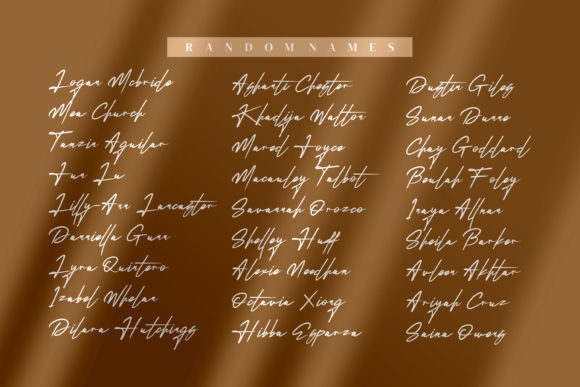 RANDOM NAMES
Logan Mcbride
Mea Church
Tanzin Aguilar
Jun Lu
Lilly-Ann Lancaster
Danniella Gunn
Lyra Quintero
Izabel Whelan
Dilara Hutchings
Ashanti Chester
Khadija Walton
Mared Joyce
Macauley Talbot
Savannah Orozco
Shelley Huff
Alexie Needham
Octavia Xiong
Hibba Esparza
Dustin Giles
Sunan Dunne
Chay Goddard
Beulah Foley
Inaya Allman
Sheila Barker
Avleen Akhtar
Ariyah Cruz
Saina Owens